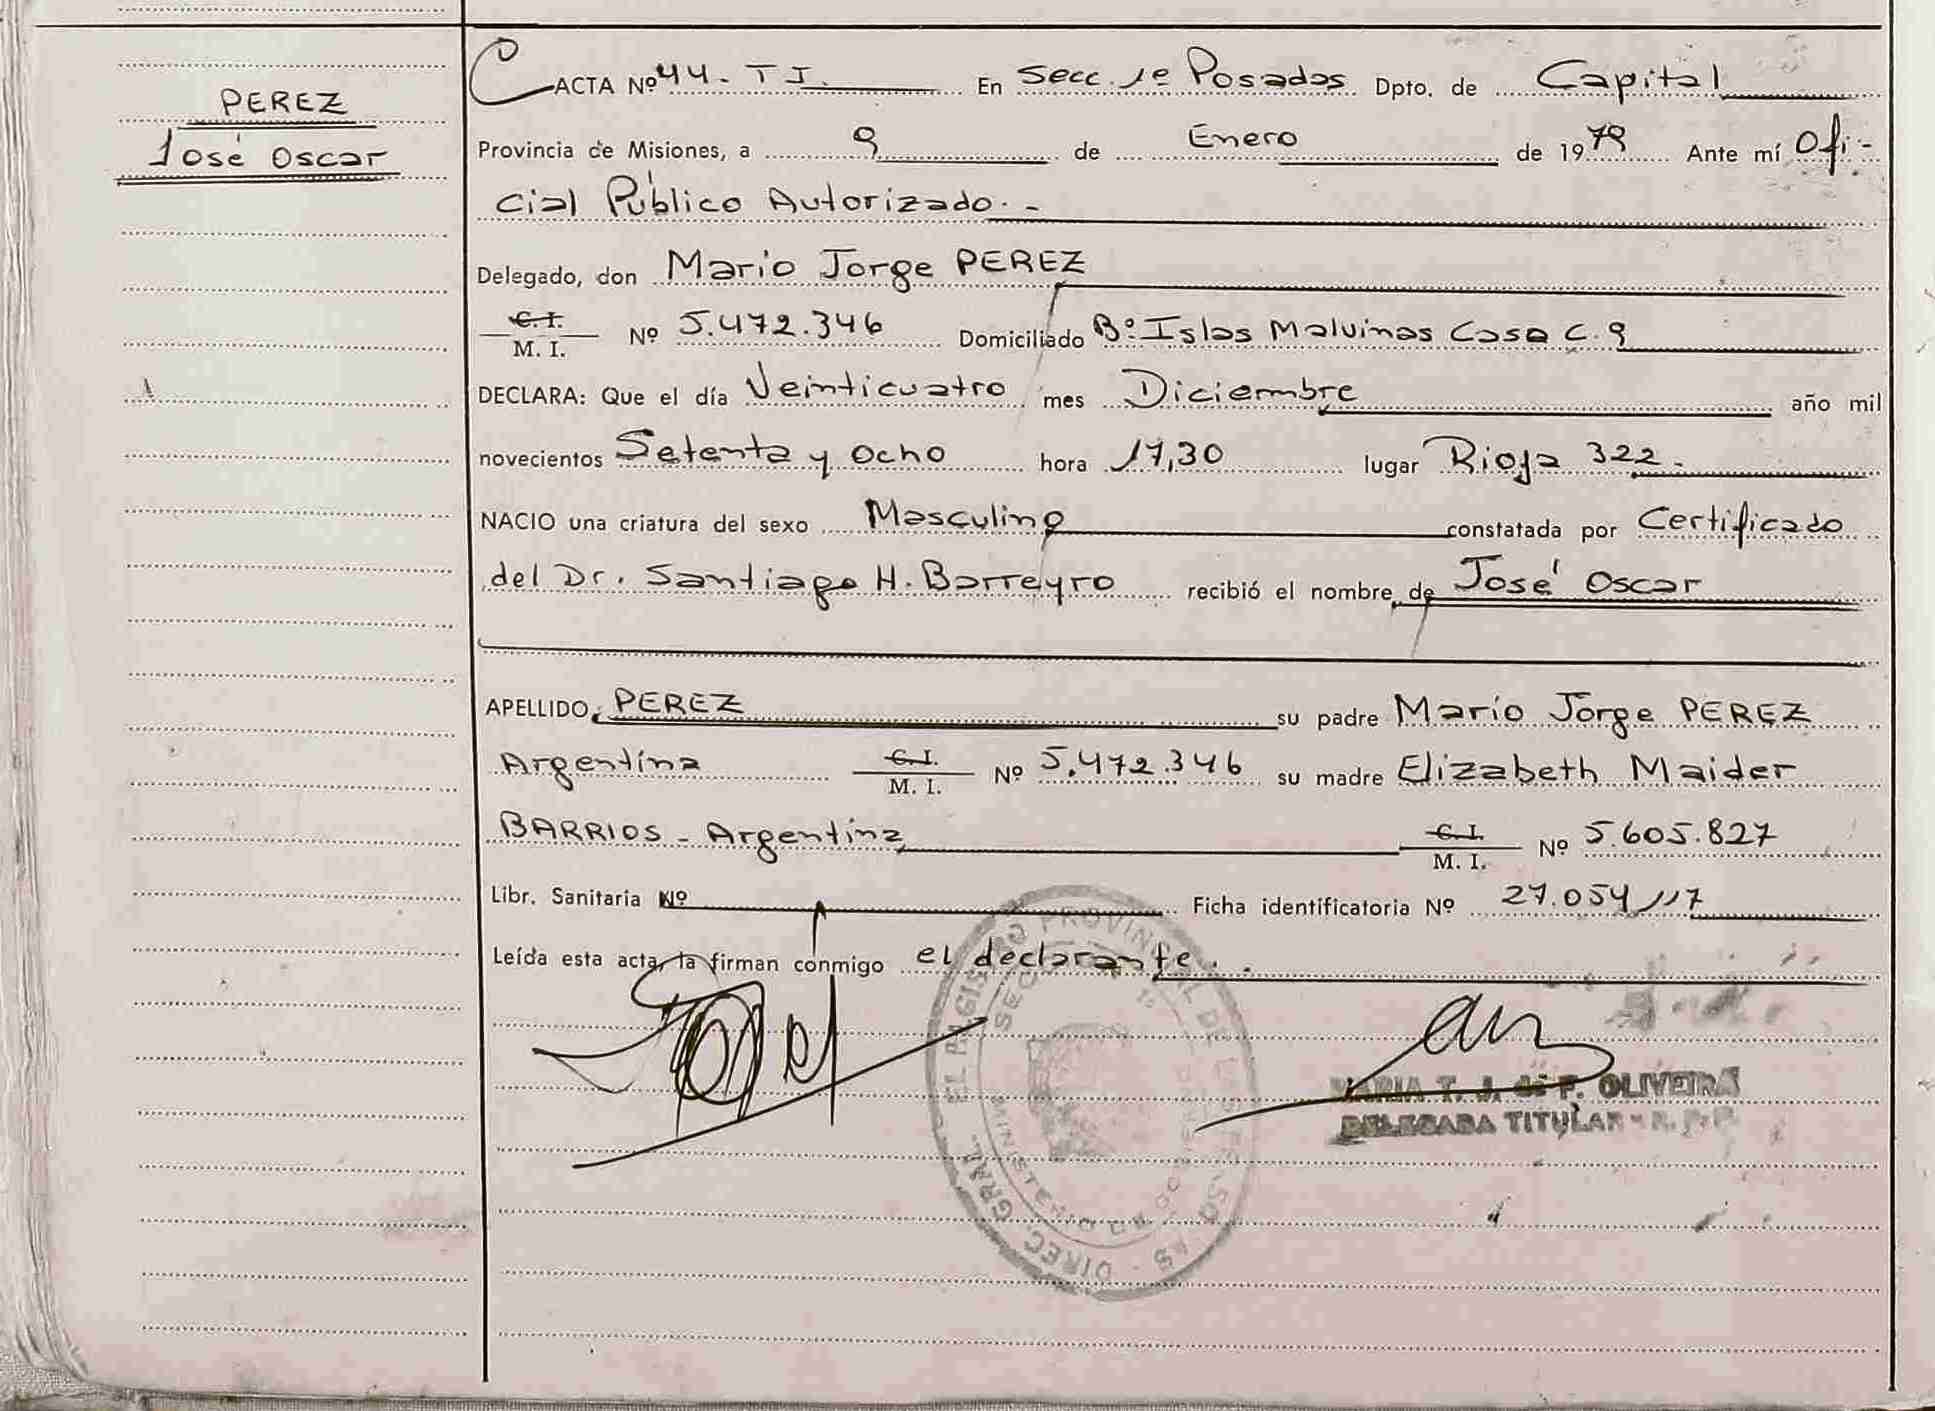 PEREZ
José Oscar
ACTA Nº 44 - T I. En Secc. 1º Posadas Dpto. de Capital
Provincia de Misiones, a 9 de Enero de 1979 Ante mí Ofi-
cial Público Autorizado. -
Delegado, don Mario Jorge PEREZ
C. I.
M. I. Nº 5.472.346 Domiciliado Bº Islas Malvinas Casa C. 9
DECLARA: Que el día Veinticuatro mes Diciembre año mil
novecientos Setenta y Ocho hora 17,30 lugar Rioja 322.-
NACIO una criatura del sexo Masculino constatada por Certificado
del Dr. Santiago H. Barreyro recibió el nombre de José Oscar
APELLIDO PEREZ su padre Mario Jorge PEREZ
Argentina C. I. M. I. Nº 5.472.346 su madre Elizabeth Maider
BARRIOS - Argentina C. I. M. I. Nº 5.605.827
Libr. Sanitaria Nº Ficha identificatoria Nº 27.054,117
Leída esta acta, la firman conmigo el declarante. .
MARIA T. J. de F. OLIVEIRA
DELEGADA TITULAR - R. P. P.
DIREC. GRAL. EL REGISTRO PROVINCIAL DE LAS PERSONAS